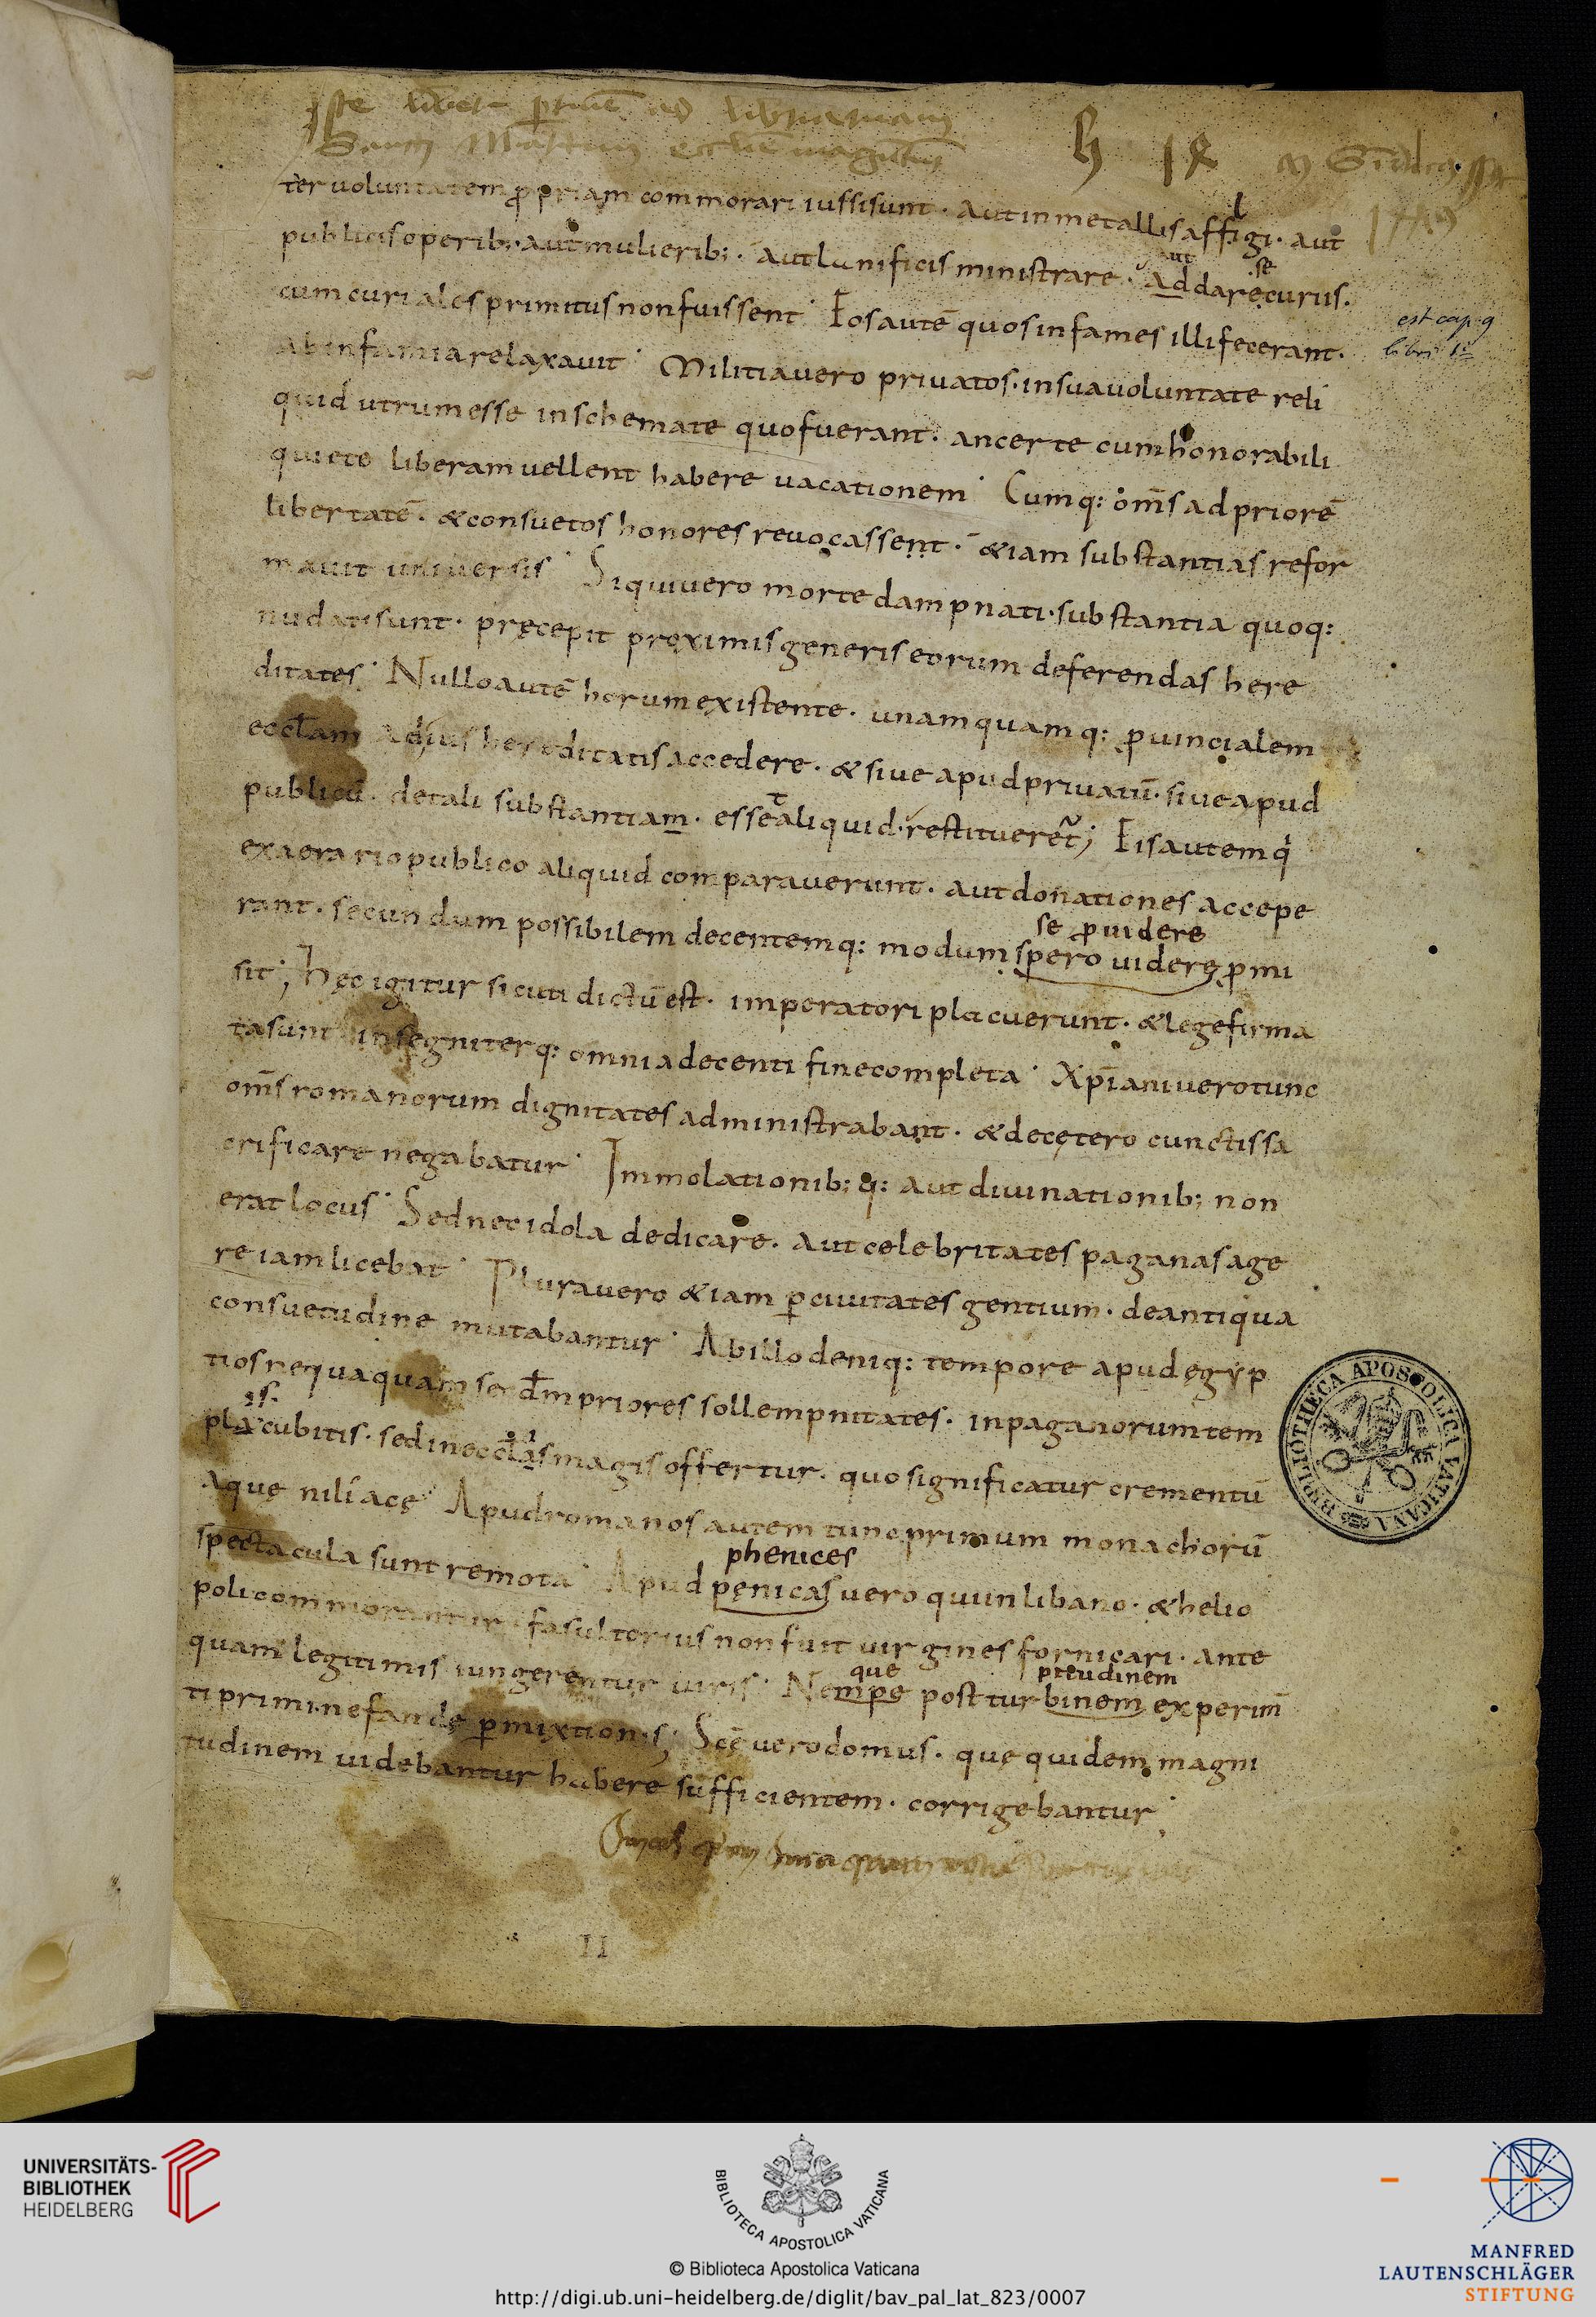 Iste liber pertinet ad librariam
Sancti Martini ecclesie maguntin
h 18
ter voluntatem ꝓpriam commorari iussi sunt. aut in metallis affligi. aut
publicis operib; aut mulierib;. aut lanificis ministrare. aut Ad dare se curiis.
cum curiales primitus non fuissent. Eos autē quos infames illi fecerant.
est cap. 9
libri 1i
ab infamia relaxavit. Militia vero privatos. in sua voluntate reli
quid utrum esse in schemate quo fuerant. an certe cum honorabili
quiete liberam vellent habere vacationem. Cumq: om̄s ad priorē
libertatē. & consuetos honores revocassent. &iam substantias refor
mavit universis. Siqui vero morte dampnati. substantia quoq:
nudati sunt. pręcepit proximis generis eorum deferendas here
ditates. Nullo autē horum existente. unam quamq: ꝓvincialem
eccl̄am ad ius hereditatis accedere. & sive apud privatū. sive apud
publicū. de tali substantiam. esset aliquid. restitueret̄; Eis autem q
ex aerario publico aliquid comparaverunt. aut donationes accepe
rant. secundum possibilem decentemq: modum spero videre ꝓmi
se ꝓvidere
sit; Hęc igitur sicuti dictū est. imperatori placuerunt. & lege firma
ta sunt insegniterq: omnia decenti fine completa. Xp̄iani vero tunc
om̄s romanorum dignitates administrabant. & de cętero cunctis sa
crificare negabatur. Immolationib; q: aut divinationib; non
erat locus. Sed nec idola dedicare. aut celebritates paganas age
re iam licebat. Plura vero &iam ꝑ civitates gentium. de antiqua
consuetudine mutabantur. Ab illo deniq: tempore apud egyp
tios nequaquam secd̄m priores sollempnitates. in paganorum tem
plis cubitis. sed in eccl̄iis magis offertur. quo significatur crementū
aquę niliacę. Apud romanos autem tunc primum monachorū
spectacula sunt remota. Apud pęnicas vero qui in libano. & helio
phenices
poli commorantur. fas ulterius non fuit virgines fornicari. ante
quam legitimis iungerentur viris. Nempe post turbinem experim̄
que
pteudinem
ti primi nefandę ꝑmixtionis; Scę vero domus. quę quidem magni
tudinem videbantur habere sufficientem. corrigebantur.
II
BIBLIOTHECA APOSTOLICA VATICANA
UNIVERSITÄTS-
BIBLIOTHEK
HEIDELBERG
BIBLIOTECA APOSTOLICA VATICANA
© Biblioteca Apostolica Vaticana
http://digi.ub.uni-heidelberg.de/diglit/bav_pal_lat_823/0007
MANFRED
LAUTENSCHLÄGER
STIFTUNG